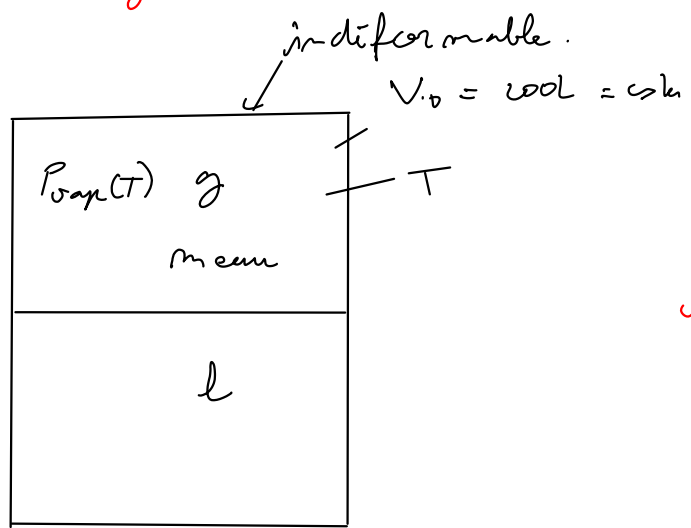 indéformable.
V₀ = 200L = cste
Pvap(T) g
T
m eau
l